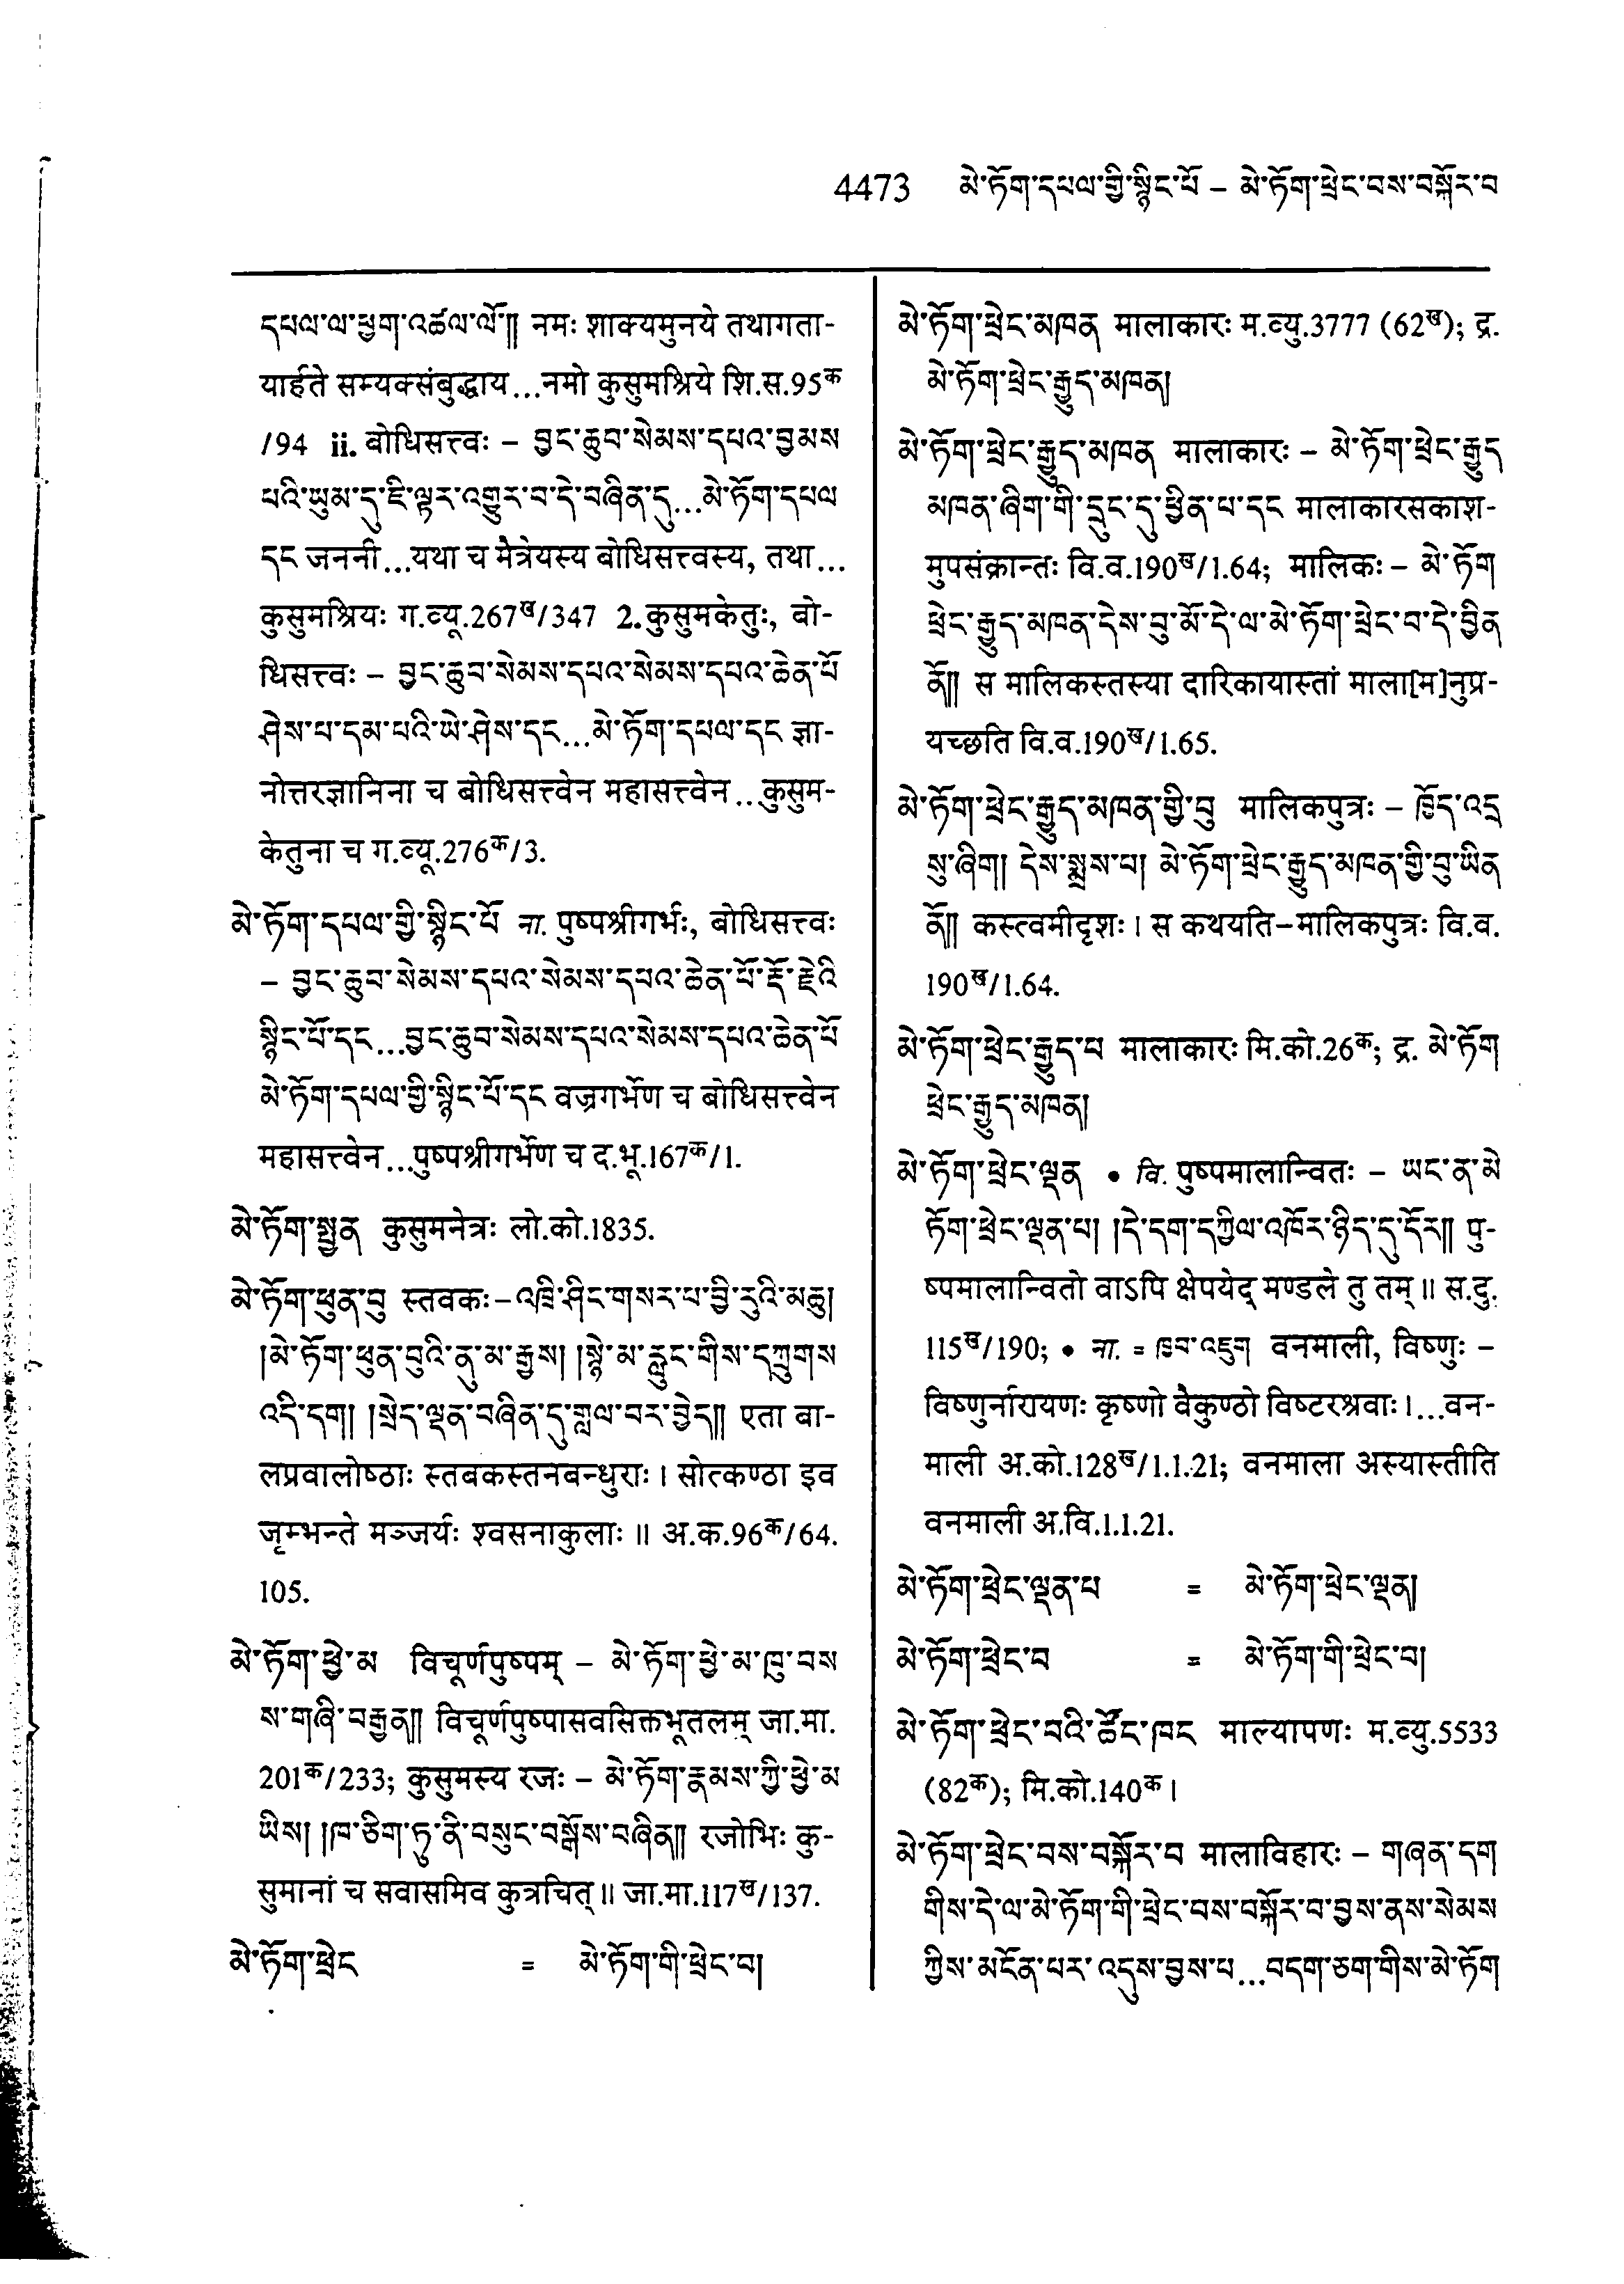 4473 མེ་ཏོག་དཔལ་གྱི་སྙིང་པོ – མེ་ཏོག་ཕྲེང་བས་བསྐོར་བ
དཔལ་ལ་ཕྱག་འཚལ་ལོ༎ नमः शाक्यमुनये तथागता-
यार्हते सम्यक्संबुद्धाय...नमो कुसुमश्रिये शि.स.95क
/94 ii. बोधिसत्त्वः – བྱང་ཆུབ་སེམས་དཔའ་བྱམས
པའི་ཡུམ་དུ་ཇི་ལྟར་འགྱུར་བ་དེ་བཞིན་དུ...མེ་ཏོག་དཔལ
དང जननी...यथा च मैत्रेयस्य बोधिसत्त्वस्य, तथा...
कुसुमश्रियः ग.व्यू.267ख/347 2. कुसुमकेतुः, बो-
धिसत्त्वः – བྱང་ཆུབ་སེམས་དཔའ་སེམས་དཔའ་ཆེན་པོ
ཤེས་པ་དམ་པའི་ཡེ་ཤེས་དང...མེ་ཏོག་དཔལ་དང ज्ञा-
नोत्तरज्ञानिना च बोधिसत्त्वेन महासत्त्वेन...कुसुम-
केतुना च ग.व्यू.276क/3.
མེ་ཏོག་དཔལ་གྱི་སྙིང་པོ ना. पुष्पश्रीगर्भः, बोधिसत्त्वः
– བྱང་ཆུབ་སེམས་དཔའ་སེམས་དཔའ་ཆེན་པོ་རྡོ་རྗེའི
སྙིང་པོ་དང...བྱང་ཆུབ་སེམས་དཔའ་སེམས་དཔའ་ཆེན་པོ
མེ་ཏོག་དཔལ་གྱི་སྙིང་པོ་དང वज्रगर्भेण च बोधिसत्त्वेन
महासत्त्वेन...पुष्पश्रीगर्भेण च द.भू.167क/1.
མེ་ཏོག་སྤྱན कुसुमनेत्रः लो.को.1835.
མེ་ཏོག་ཕུན་བུ स्तवकः – འཁྲི་ཤིང་གསར་པ་བྱི་རུའི་མཆུ།
།མེ་ཏོག་ཕུན་བུའི་ནུ་མ་རྒྱས། །སྙེ་མ་རླུང་གིས་དཀྲུགས
འདི་དག། །སྲེད་ལྡན་བཞིན་དུ་གླལ་བར་བྱེད༎ एता बा-
लप्रवालोष्ठाः स्तबकस्तनबन्धुराः । सोत्कण्ठा इव
जृम्भन्ते मञ्जर्यः श्वसनाकुलाः ॥ अ.क.96क/64.
105.
མེ་ཏོག་ཕྱེ་མ विचूर्णपुष्पम् – མེ་ཏོག་ཕྱེ་མ་ཁུ་བས
ས་གཞི་བརྒྱན༎ विचूर्णपुष्पासवसिक्तभूतलम् जा.मा.
201क/233; कुसुमस्य रजः – མེ་ཏོག་རྣམས་ཀྱི་ཕྱེ་མ
ཡིས། །ཁ་ཅིག་ཏུ་ནི་བསུང་བསྒོས་བཞིན༎ रजोभिः कु-
सुमानां च सवासमिव कुत्रचित् ॥ जा.मा.117ख/137.
མེ་ཏོག་ཕྲེང = མེ་ཏོག་གི་ཕྲེང་བ།
མེ་ཏོག་ཕྲེང་མཁན मालाकारः म.व्यु.3777 (62ख); द्र.
མེ་ཏོག་ཕྲེང་རྒྱུད་མཁན།
མེ་ཏོག་ཕྲེང་རྒྱུད་མཁན मालाकारः – མེ་ཏོག་ཕྲེང་རྒྱུད
མཁན་ཞིག་གི་དྲུང་དུ་ཕྱིན་པ་དང मालाकारसकाश-
मुपसंक्रान्तः वि.व.190ख/1.64; मालिकः – མེ་ཏོག
ཕྲེང་རྒྱུད་མཁན་དེས་བུ་མོ་དེ་ལ་མེ་ཏོག་ཕྲེང་བ་དེ་བྱིན
ནོ༎ स मालिकस्तस्या दारिकायास्तां माला[म]नुप्र-
यच्छति वि.व.190ख/1.65.
མེ་ཏོག་ཕྲེང་རྒྱུད་མཁན་གྱི་བུ मालिकपुत्रः – ཁྱོད་འདྲ
སུ་ཞིག། དེས་སྨྲས་པ། མེ་ཏོག་ཕྲེང་རྒྱུད་མཁན་གྱི་བུ་ཡིན
ནོ༎ कस्त्वमीदृशः । स कथयति–मालिकपुत्रः वि.व.
190ख/1.64.
མེ་ཏོག་ཕྲེང་རྒྱུད་པ मालाकारः मि.को.26क; द्र. མེ་ཏོག
ཕྲེང་རྒྱུད་མཁན།
མེ་ཏོག་ཕྲེང་ལྡན • वि. पुष्पमालान्वितः – ཡང་ན་མེ
ཏོག་ཕྲེང་ལྡན་པ། །དེ་དག་དཀྱིལ་འཁོར་ཉིད་དུ་དོར༎ पु-
ष्पमालान्वितो वाऽपि क्षेपयेद् मण्डले तु तम् ॥ स.दु.
115ख/190; • ना. = ཁྱབ་འཇུག वनमाली, विष्णुः –
विष्णुर्नारायणः कृष्णो वैकुण्ठो विष्टरश्रवाः ।...वन-
माली अ.को.128ख/1.1.21; वनमाला अस्यास्तीति
वनमाली अ.वि.1.1.21.
མེ་ཏོག་ཕྲེང་ལྡན་པ = མེ་ཏོག་ཕྲེང་ལྡན།
མེ་ཏོག་ཕྲེང་བ = མེ་ཏོག་གི་ཕྲེང་བ།
མེ་ཏོག་ཕྲེང་བའི་ཚོང་ཁང माल्यापणः म.व्यु.5533
(82क); मि.को.140क ।
མེ་ཏོག་ཕྲེང་བས་བསྐོར་བ मालाविहारः – གཞན་དག
གིས་དེ་ལ་མེ་ཏོག་གི་ཕྲེང་བས་བསྐོར་བ་བྱས་ནས་སེམས
ཀྱིས་མངོན་པར་འདུས་བྱས་པ...བདག་ཅག་གིས་མེ་ཏོག